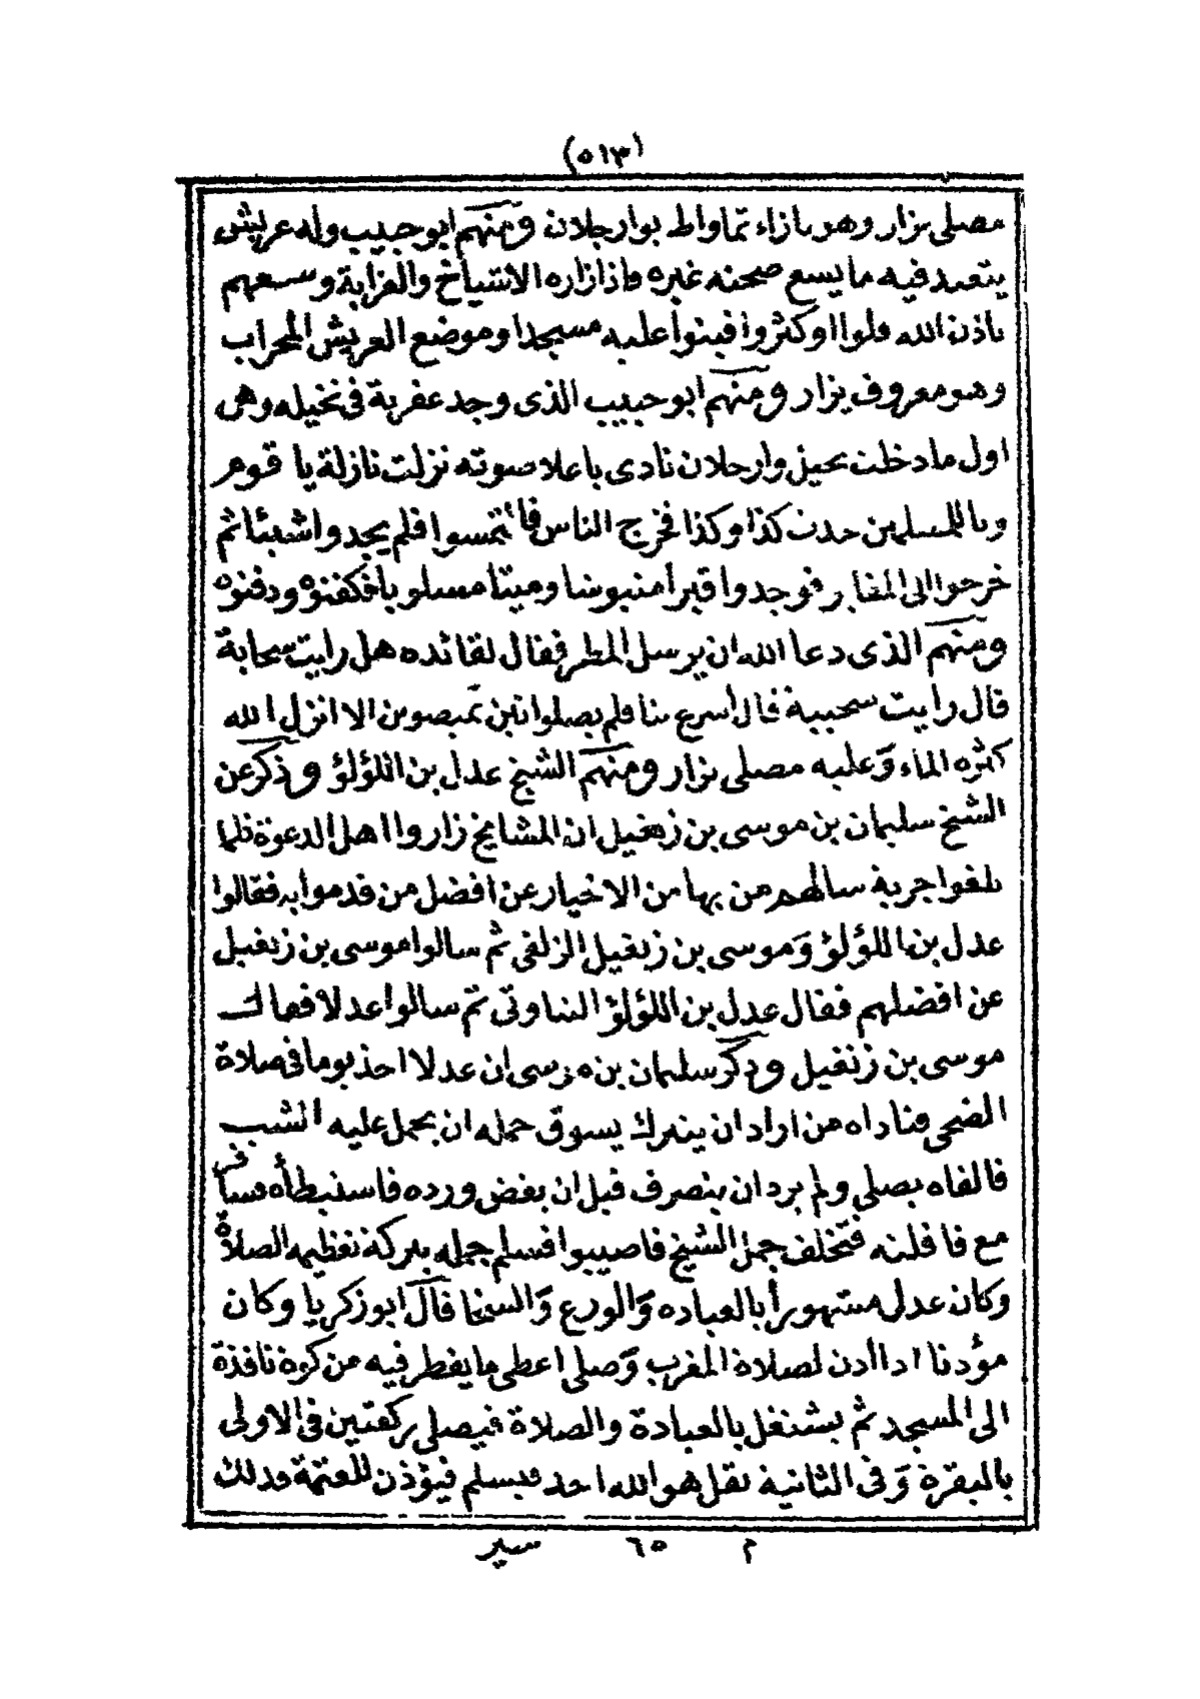 (٥١٣)
مصلى يزار وهو بازاء تماواط بوارجلان ومنهم ابو حبيب وله عريش
يتعبد فيه ما يسع صحنه غيره فاذا زاره الاشياخ والعزابة وسعهم
باذن الله ولوا اوكثروا فبنوا عليه مسجدا وموضع العريش المحراب
وهو معروف يزار ومنهم ابو حبيب الذى وجد عفربة فى نخيله وهى
اول ما دخلت بحيز وارجلان نادى باعلا صوته نزلت نازلة يا قوم
ويا للمسلمين حدث كذا وكذا فخرج الناس فالتمسوا فلم يجدوا شيئا ثم
خرجوا الى المقابر فوجدوا قبرا منبوشا وميتا مسلوبا فكفنوه ودفنوه
ومنهم الذى دعا الله ان يرسل المطر فقال لقائده هل رايت سحابة
قال رايت سحيبة قال اسرع بنا فلم يصلوا تين تمصوين الا انزل الله
كثره الماء وعليه مصلى يزار ومنهم الشيخ عدل بن اللؤلؤ وذكر عن
الشيخ سليمان بن موسى بن زنغيل ان المشايخ زاروا اهل الدعوة فلما
بلغوا جربة سالهم من بها من الاخيار عن افضل من قدموا به فقالوا
عدل بن اللؤلؤ وموسى بن زنغيل الزلفى ثم سالوا موسى بن زنغيل
عن افضلهم فقال عدل بن اللؤلؤ التناوتى ثم سالوا عدلا فقال
موسى بن زنغيل وذكر سليمان بن موسى ان عدلا اخذ يوما فى صلاة
الضحى فناداه من اراد ان يتبرك بسوق جمله ان يحمل عليه الشبب
فالفاه يصلى ولم يرد ان ينصرف قبل ان يفض ورده فاستبطأه فسافر
مع قافلته فتخلف جمل الشيخ فاصيبوا فسلم جمله ببركة تعظيمه الصلاة
وكان عدل مشهورا بالعباده والورع والسخا قال ابو زكريا وكان
مؤذنا اذا أذن لصلاة المغرب وصلى اعطى ما يفطر فيه من كوة نافذة
الى المسجد ثم يشتغل بالعبادة والصلاة فيصلى ركعتين فى الاولى
بالبقرة وفى الثانية بقل هو الله احد فيسلم فيؤذن للعتمة وذلك
م ٦٥ سير